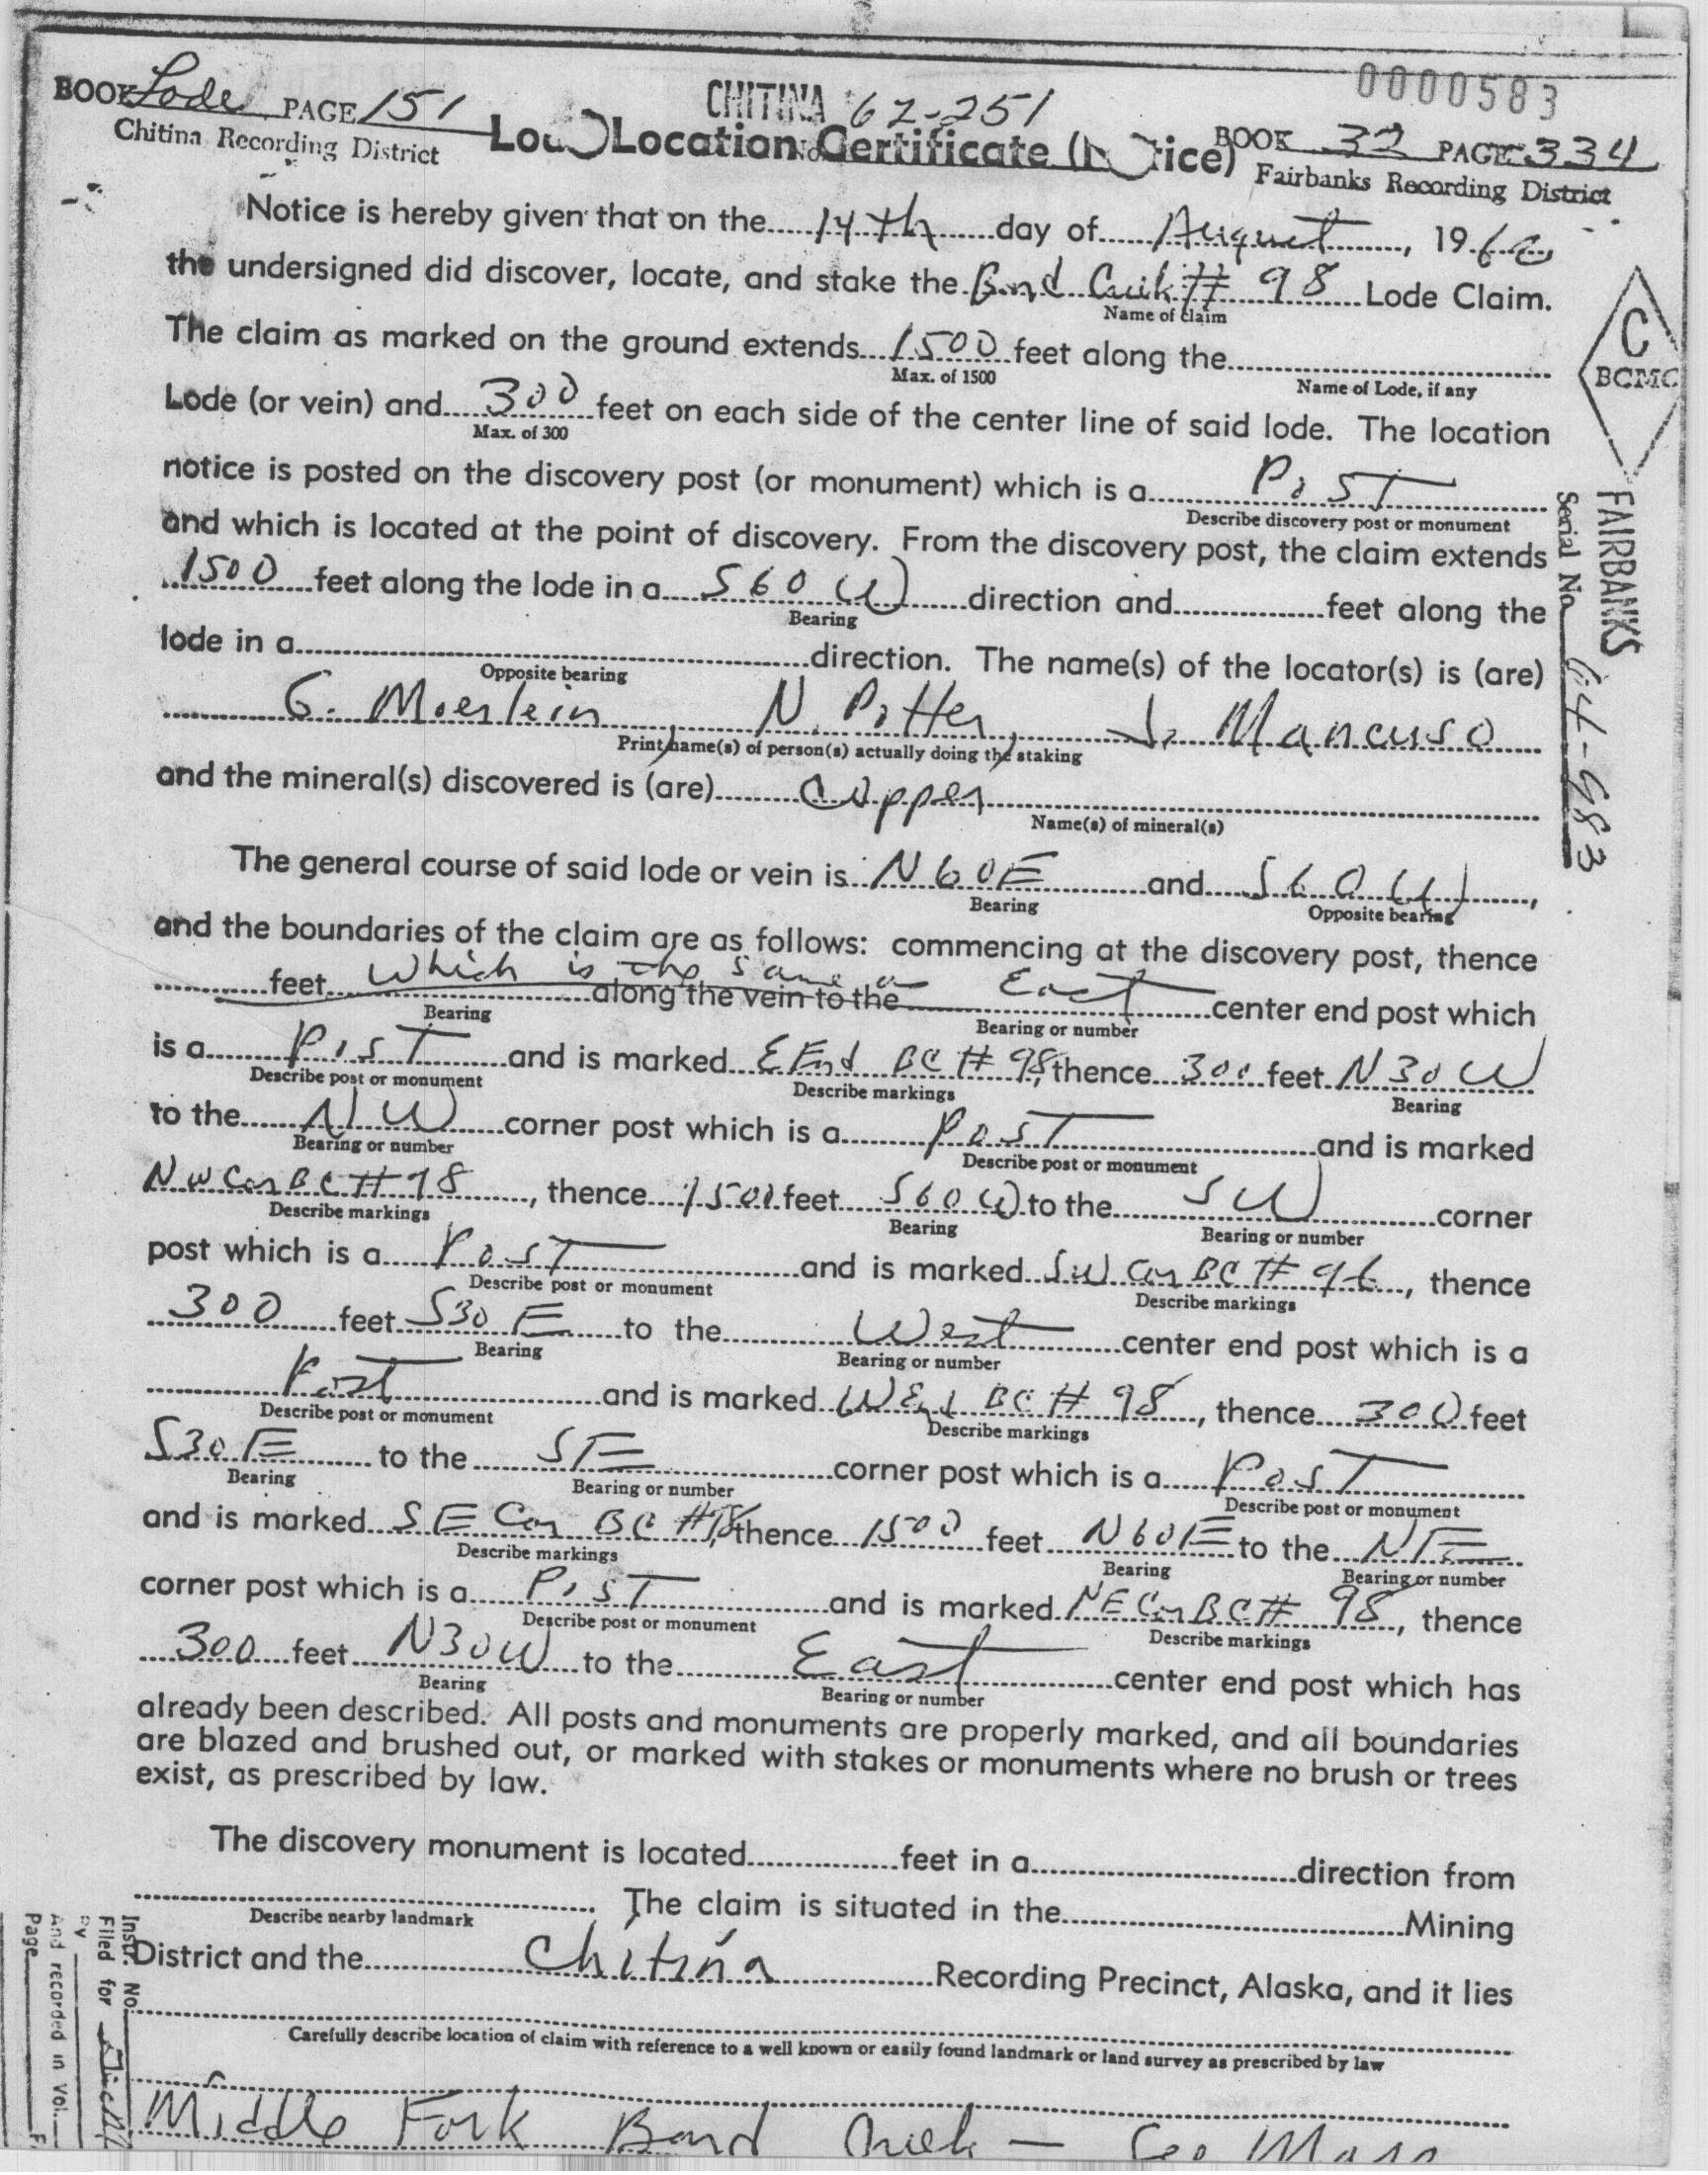 BOOK Lode PAGE 151
Chitina Recording District
CHITINA 62-251
0000583
Location Certificate
BOOK 32 PAGE 334
Fairbanks Recording District
Notice is hereby given that on the 14th day of August, 19
the undersigned did discover, locate, and stake the Bond Creek # 98 Lode Claim.
Name of claim
The claim as marked on the ground extends 1500 feet along the
Max. of 1500 Name of Lode, if any
Lode (or vein) and 300 feet on each side of the center line of said lode. The location
Max. of 300
notice is posted on the discovery post (or monument) which is a Post
Describe discovery post or monument
and which is located at the point of discovery. From the discovery post, the claim extends
1500 feet along the lode in a S60W direction and feet along the
Bearing
lode in a direction. The name(s) of the locator(s) is (are)
Opposite bearing
G. Moerlein, N. Potter, J. Mancuso
Print name(s) of person(s) actually doing the staking
and the mineral(s) discovered is (are) Copper
Name(s) of mineral(s)
The general course of said lode or vein is N60E and S60W,
Bearing Opposite bearing
and the boundaries of the claim are as follows: commencing at the discovery post, thence
feet which is the same as along the vein to the East center end post which
Bearing Bearing or number
is a Post and is marked E End BC # 98, thence 300 feet N30W
Describe post or monument Describe markings Bearing
to the NW corner post which is a Post and is marked
Bearing or number Describe post or monument
NW Cor BC # 98, thence 1500 feet S60W to the SW corner
Describe markings Bearing Bearing or number
post which is a Post and is marked SW Cor BC #, thence
Describe post or monument Describe markings
300 feet S30E to the West center end post which is a
Bearing Bearing or number
Post and is marked W End BC # 98, thence 300 feet
Describe post or monument Describe markings
S30E to the SE corner post which is a Post
Bearing Bearing or number Describe post or monument
and is marked SE Cor BC #98, thence 1500 feet N60E to the NE
Describe markings Bearing Bearing or number
corner post which is a Post and is marked NE Cor BC # 98, thence
Describe post or monument Describe markings
300 feet N30W to the East center end post which has
Bearing Bearing or number
already been described. All posts and monuments are properly marked, and all boundaries
are blazed and brushed out, or marked with stakes or monuments where no brush or trees
exist, as prescribed by law.
The discovery monument is located feet in a direction from
. The claim is situated in the Mining
Describe nearby landmark
District and the Chitina Recording Precinct, Alaska, and it lies
Carefully describe location of claim with reference to a well known or easily found landmark or land survey as prescribed by law
Middle Fork Bond Creek —
C
BCMC
FAIRBANKS
Serial No. 64-983
Instr. No.
Filed for
By
And recorded in Vol.
Page